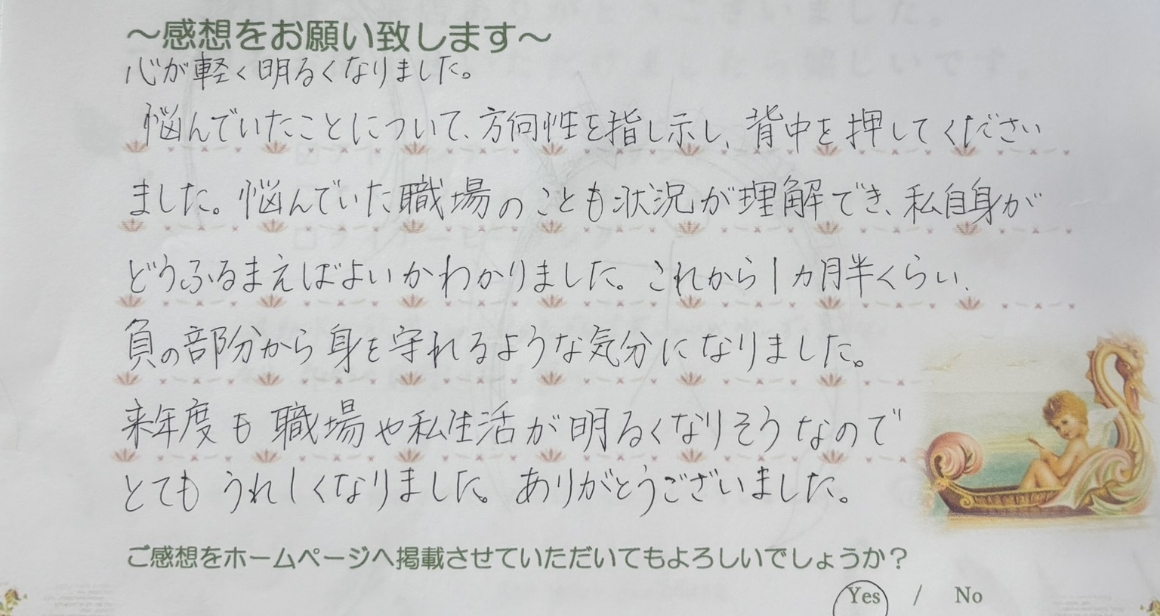 ～感想をお願い致します～
心が軽く明るくなりました。
悩んでいたことについて、方向性を指し示し、背中を押してください
ました。悩んでいた職場のことも状況が理解でき、私自身が
どうふるまえばよいかわかりました。これから1カ月半くらい、
負の部分から身を守れるような気分になりました。
来年度も職場や私生活が明るくなりそうなので
とてもうれしくなりました。ありがとうございました。
ご感想をホームページへ掲載させていただいてもよろしいでしょうか？
Yes / No